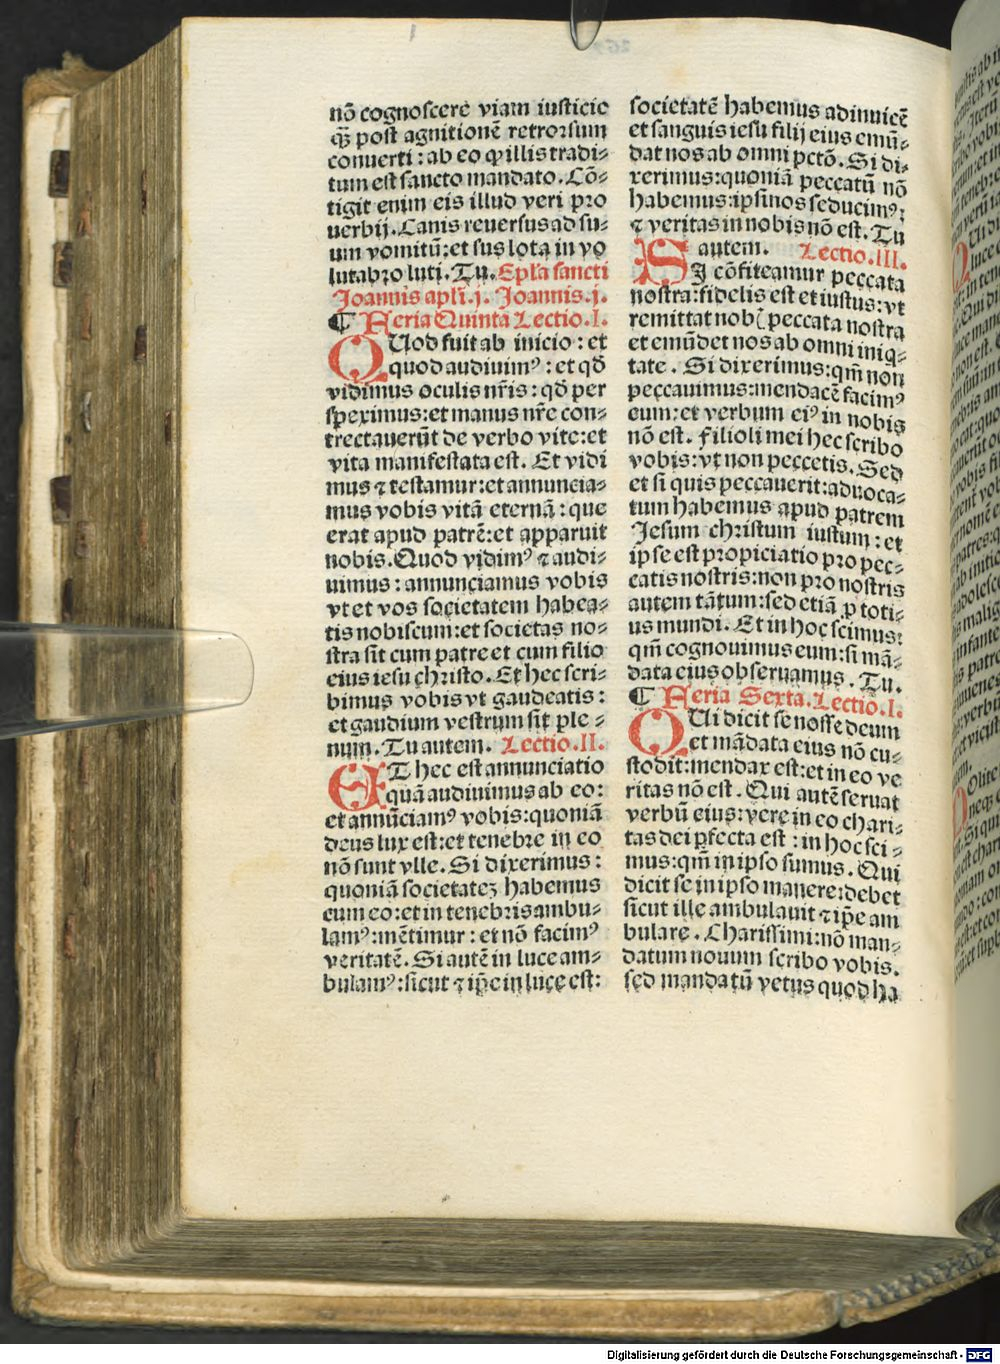 nō cognoscere viam iusticie
q̄ʒ post agnitionē retrorsum
conuerti : ab eo qđ illis tradi⸗
tum est sancto mandato . Cō⸗
tigit enim eis illud veri pro
uerbij . Canis reuersus ad su⸗
um vomitū : et sus lota in vo
lutabro luti . Tu . Epl̄a sancti
Joannis apl̄i . j . Joannis . j .
¶ Feria Quinta Lectio . I .
QUod fuit ab inicio : et
quod audiuimꝰ : et qđ
vidimus oculis nr̄is : qđ per
speximus : et manus nr̄e con⸗
trectauerūt de verbo vite : et
vita manifestata est . Et vidi
mus ⁊ testamur : et annuncia⸗
mus vobis vitā eternā : que
erat apud patrē : et apparuit
nobis . Quod vidimꝰ ⁊ audi⸗
uimus : annunciamus vobis
vt et vos societatem habea⸗
tis nobiscum : et societas no⸗
stra sit cum patre et cum filio
eius iesu christo . Et hec scri⸗
bimus vobis vt gaudeatis :
et gaudium vestrum sit ple⸗
num . Tu autem . Lectio . II .
ET hec est annunciatio
quā audiuimus ab eo :
et annūciamꝰ vobis : quoniā
deus lux est : et tenebre in eo
nō sunt vlle . Si dixerimus :
quoniā societateʒ habemus
cum eo : et in tenebris ambu⸗
lamꝰ : mētimur : et nō facimꝰ
veritatē . Si autē in luce am⸗
bulamꝰ : sicut ⁊ ip̄e in luce est :
societatē habemus adinuicē
et sanguis iesu filij eius emū⸗
dat nos ab omni pctō . Si di⸗
xerimus : quoniā peccatū nō
habemus : ipsi nos seducimꝰ :
⁊ veritas in nobis nō est . Tu
autem . Lectio . III .
SI cōfiteamur peccata
nostra : fidelis est et iustus : vt
remittat nob̄ peccata nostra
et emūdet nos ab omni iniq⸗
tate . Si dixerimus : qm̄ non
peccauimus : mendacē facimꝰ
eum : et verbum eiꝰ in nobis
nō est . Filioli mei hec scribo
vobis : vt non peccetis . Sed
et si quis peccauerit : aduoca⸗
tum habemus apud patrem
Jesum christum iustum : et
ipse est propiciatio pro pec⸗
catis nostris : non pro nostris
autem tātum : sed etiā ꝓ toti⸗
us mundi . Et in hoc scimus :
qm̄ cognouimus eum : si mā⸗
data eius obseruamus . Tu .
¶ Feria Sexta . Lectio . I .
QUi dicit se nosse deum
et mādata eius nō cu⸗
stodit : mendax est : et in eo ve
ritas nō est . Qui autē seruat
verbū eius : vere in eo chari⸗
tas dei ꝑfecta est : in hoc sci⸗
mus : qm̄ in ipso sumus . Qui
dicit se in ipso manere : debet
sicut ille ambulauit ⁊ ip̄e am
bulare . Charissimi : nō man⸗
datum nouum scribo vobis .
sed mandatū vetus quod ha
Digitalisierung gefördert durch die Deutsche Forschungsgemeinschaft - DFG